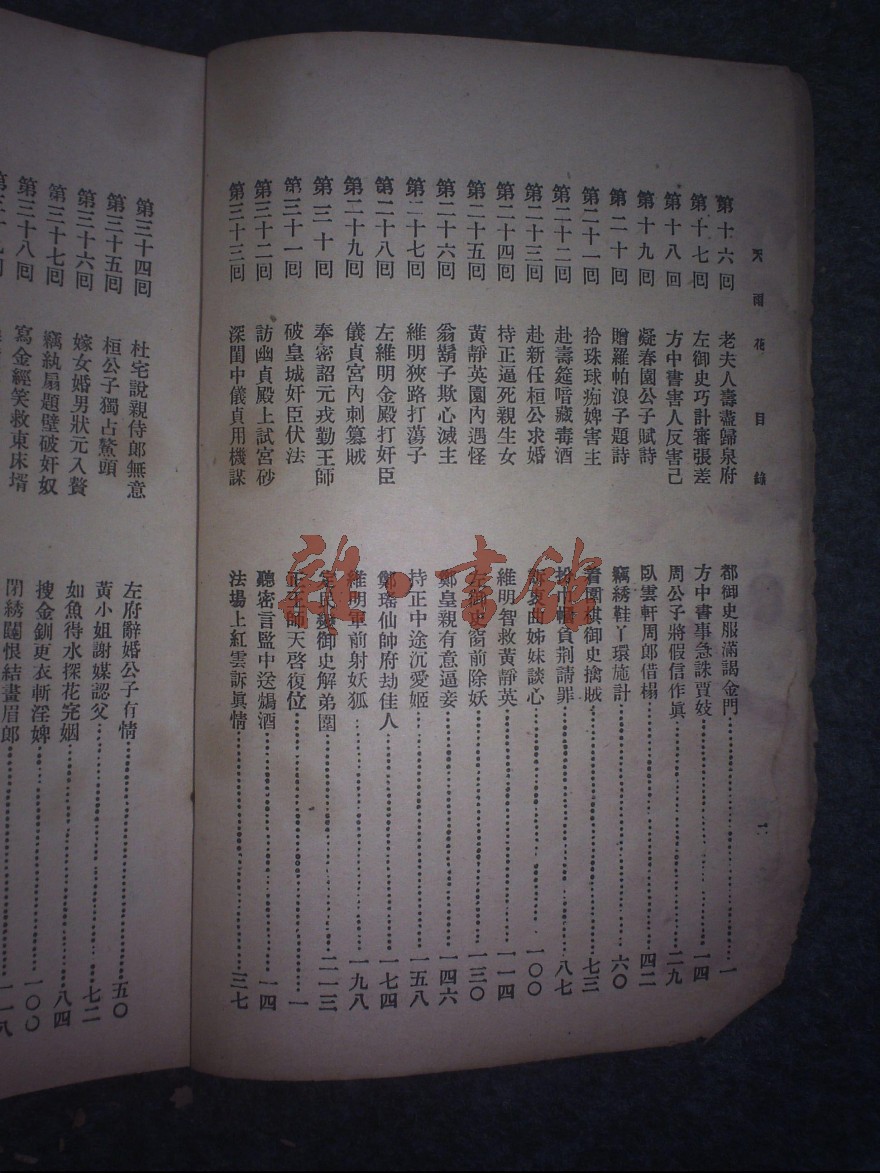 天雨花 目錄
第十六囘 老夫人壽盡歸泉府 都御史服滿謁金門 一
第十七囘 左御史巧計審張差 方中書事急誅賈妓 一四
第十八囘 方中書害人反害己 周公子將假信作眞 二九
第十九囘 凝春園公子賦詩 臥雲軒周郎借榻 四二
第二十囘 贈羅帕浪子題詩 竊綉鞋丫環施計 六〇
第二十一囘 拾珠球痴婢害主 着圍棋御史擒賊 七三
第二十二囘 赴壽筵喑藏毒酒 扮巾幗負荆請罪 八七
第二十三囘 赴新任桓公求婚 訴衷曲姊妹談心 一〇〇
第二十四囘 持正逼死親生女 維明智救黃靜英 一一四
第二十五囘 黃靜英園內遇怪 左御史窗前除妖 一三〇
第二十六囘 翁鬍子欺心滅主 鄭皇親有意逼妾 一四六
第二十七囘 維明狹路打蕩子 持正中途沉愛姬 一五八
第二十八囘 左維明金殿打奸臣 鄭瑤仙帥府劫佳人 一七四
第二十九囘 儀貞宮內刺篡賊 維明軍前射妖狐 一九八
第三十囘 奉密詔元戎勤王師 定民變御史解弟圍 二一三
第三十一囘 破皇城奸臣伏法 正王師天啓復位 一
第三十二囘 訪幽貞殿上試宮砂 聽密言監中送鴆酒 一四
第三十三囘 深閨中儀貞用機謀 法場上紅雲訴眞情 三七
第三十四囘 杜宅說親侍郎無意 左府辭婚公子有情 五〇
第三十五囘 桓公子獨占鰲頭 黃小姐謝媒認父 七二
第三十六囘 嫁女婚男狀元入贅 如魚得水探花完姻 八四
第三十七囘 竊紈扇題壁破奸奴 搜金釧更衣斬淫婢 一〇〇
第三十八囘 寫金經笑救東床壻 閉綉闥恨結畫眉郎 一一八
雜·書舘